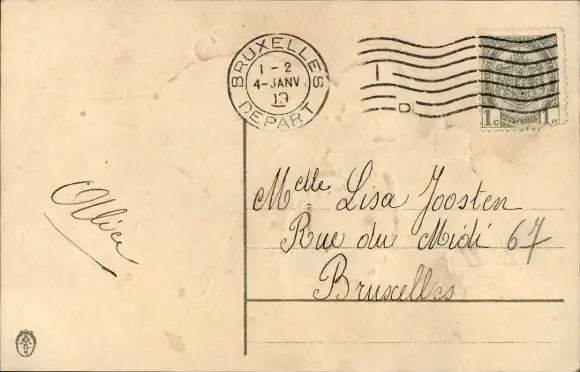 BRUXELLES
1-2
4-JANV
DEPART
1c 1c
Alice
Melle Lisa Joosten
Rue du Midi 67
Bruxelles